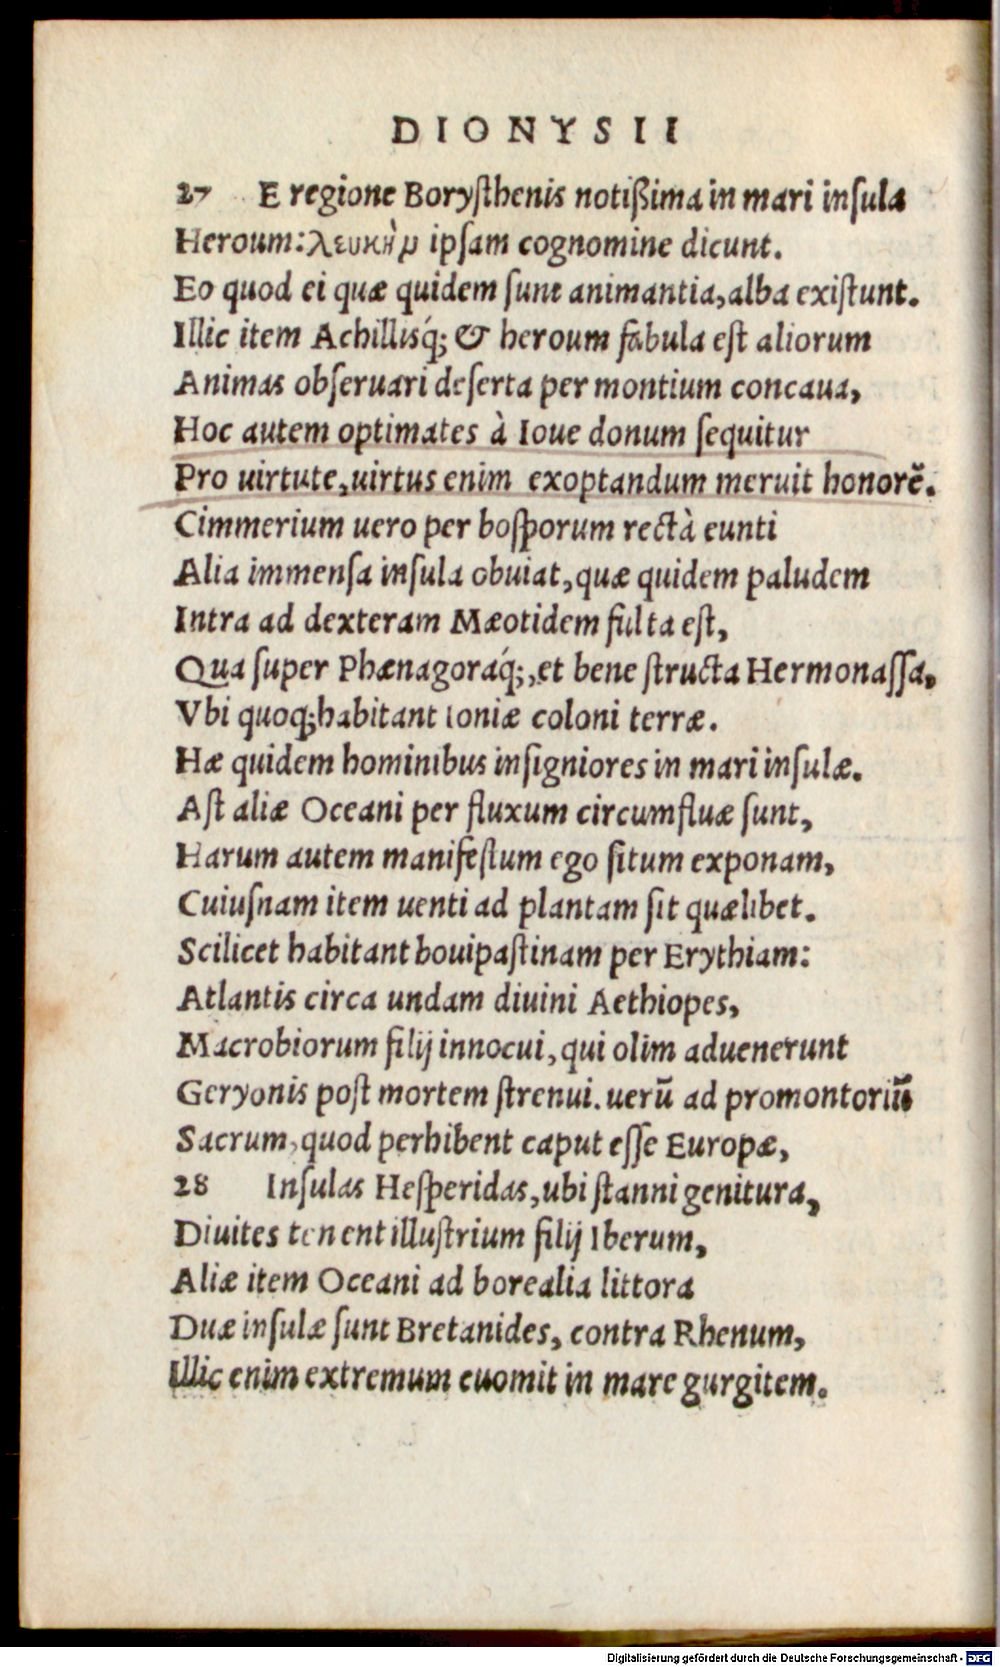 DIONYSII
27 E regione Borysthenis notißima in mari insula
Heroum: λευκὴν ipsam cognomine dicunt.
Eo quod ei quæ quidem sunt animantia, alba existunt.
Illic item Achillisq́; & heroum fabula est aliorum
Animas obseruari deserta per montium concaua,
Hoc autem optimates à Ioue donum sequitur
Pro uirtute, uirtus enim exoptandum meruit honorẽ.
Cimmerium uero per bosporum rectà eunti
Alia immensa insula obuiat, quæ quidem paludem
Intra ad dexteram Mæotidem fulta est,
Qua super Phænagoraq́;, et bene structa Hermonassa,
Vbi quoq; habitant Ioniæ coloni terræ.
Hæ quidem hominibus insigniores in mari insulæ.
Ast aliæ Oceani per fluxum circumfluæ sunt,
Harum autem manifestum ego situm exponam,
Cuiusnam item uenti ad plantam sit quælibet.
Scilicet habitant bouipastinam per Erythiam:
Atlantis circa undam diuini Aethiopes,
Macrobiorum filij innocui, qui olim aduenerunt
Geryonis post mortem strenui. uerũ ad promontoriũ
Sacrum, quod perhibent caput esse Europæ,
28 Insulas Hesperidas, ubi stanni genitura,
Diuites tenent illustrium filij Iberum,
Aliæ item Oceani ad borealia littora
Duæ insulæ sunt Bretanides, contra Rhenum,
Illic enim extremum euomit in mare gurgitem.
Digitalisierung gefördert durch die Deutsche Forschungsgemeinschaft - DFG